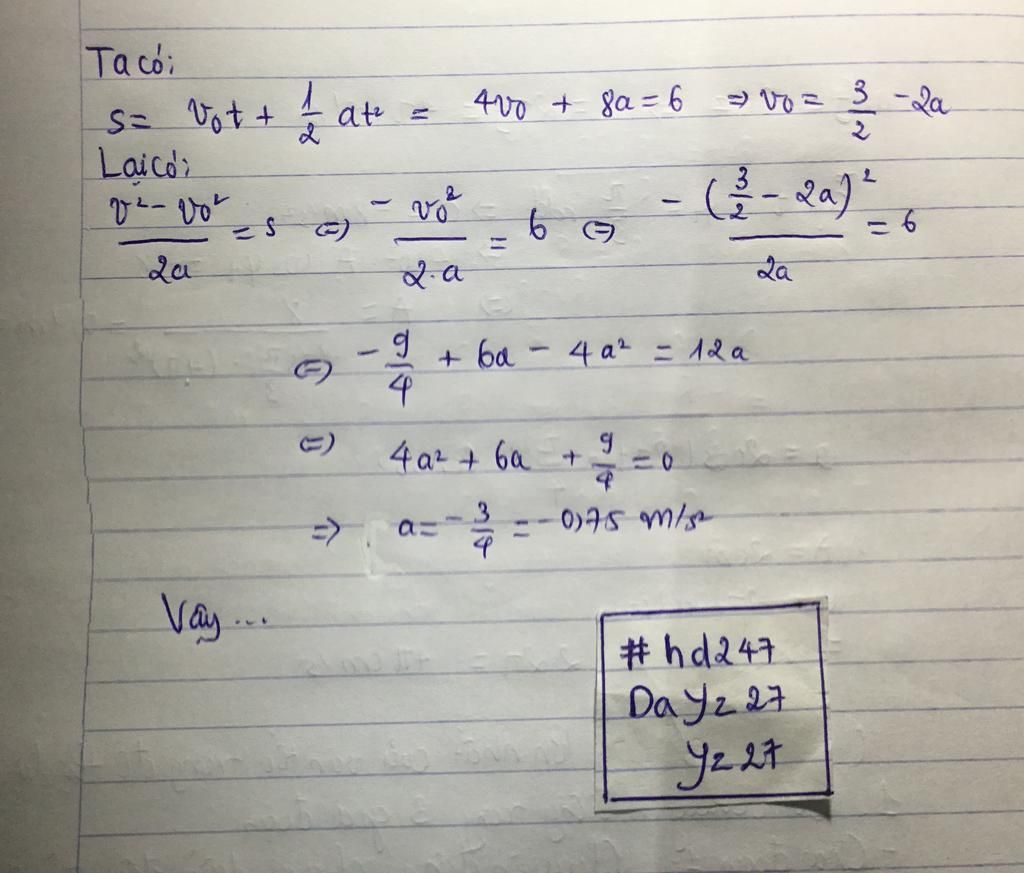 Ta có:
s = v₀t + 1/2 at² = 4v₀ + 8a = 6 ⇒ v₀ = 3/2 - 2a
Lại có:
(v² - v₀²)/2a = s ⇔ -v₀²/2.a = 6 ⇔ -(3/2 - 2a)²/2a = 6
⇔ -9/4 + 6a - 4a² = 12a
⇔ 4a² + 6a + 9/4 = 0
⇒ a = -3/4 = -0,75 m/s²
Vậy...
#hd247
Dayz27
yz27